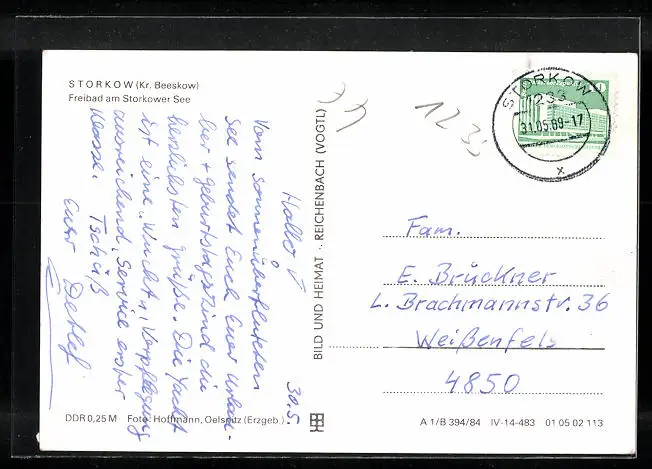 STORKOW (Kr. Beeskow)
Freibad am Storkower See
30.5.
Hallo!
Vom sonnenüberfluteten
See sendet Euch Euer Urlau-
ber + Geburtstagskind die
herzlichsten Grüße. Die Yacht
ist eine „Wucht", Verpflegung
ausreichend, Service erster
Klasse. Tschüß
Euer Detlef
BILD UND HEIMAT · REICHENBACH (VOGTL)
1233
STORKOW
1233
31.05.89-17
x
Fam.
E. Brückner
L. Brachmannstr. 36
Weißenfels
4850
DDR 0,25 M Foto: Hoffmann, Oelsnitz (Erzgeb.)
A 1/B 394/84 IV-14-483 01 05 02 113